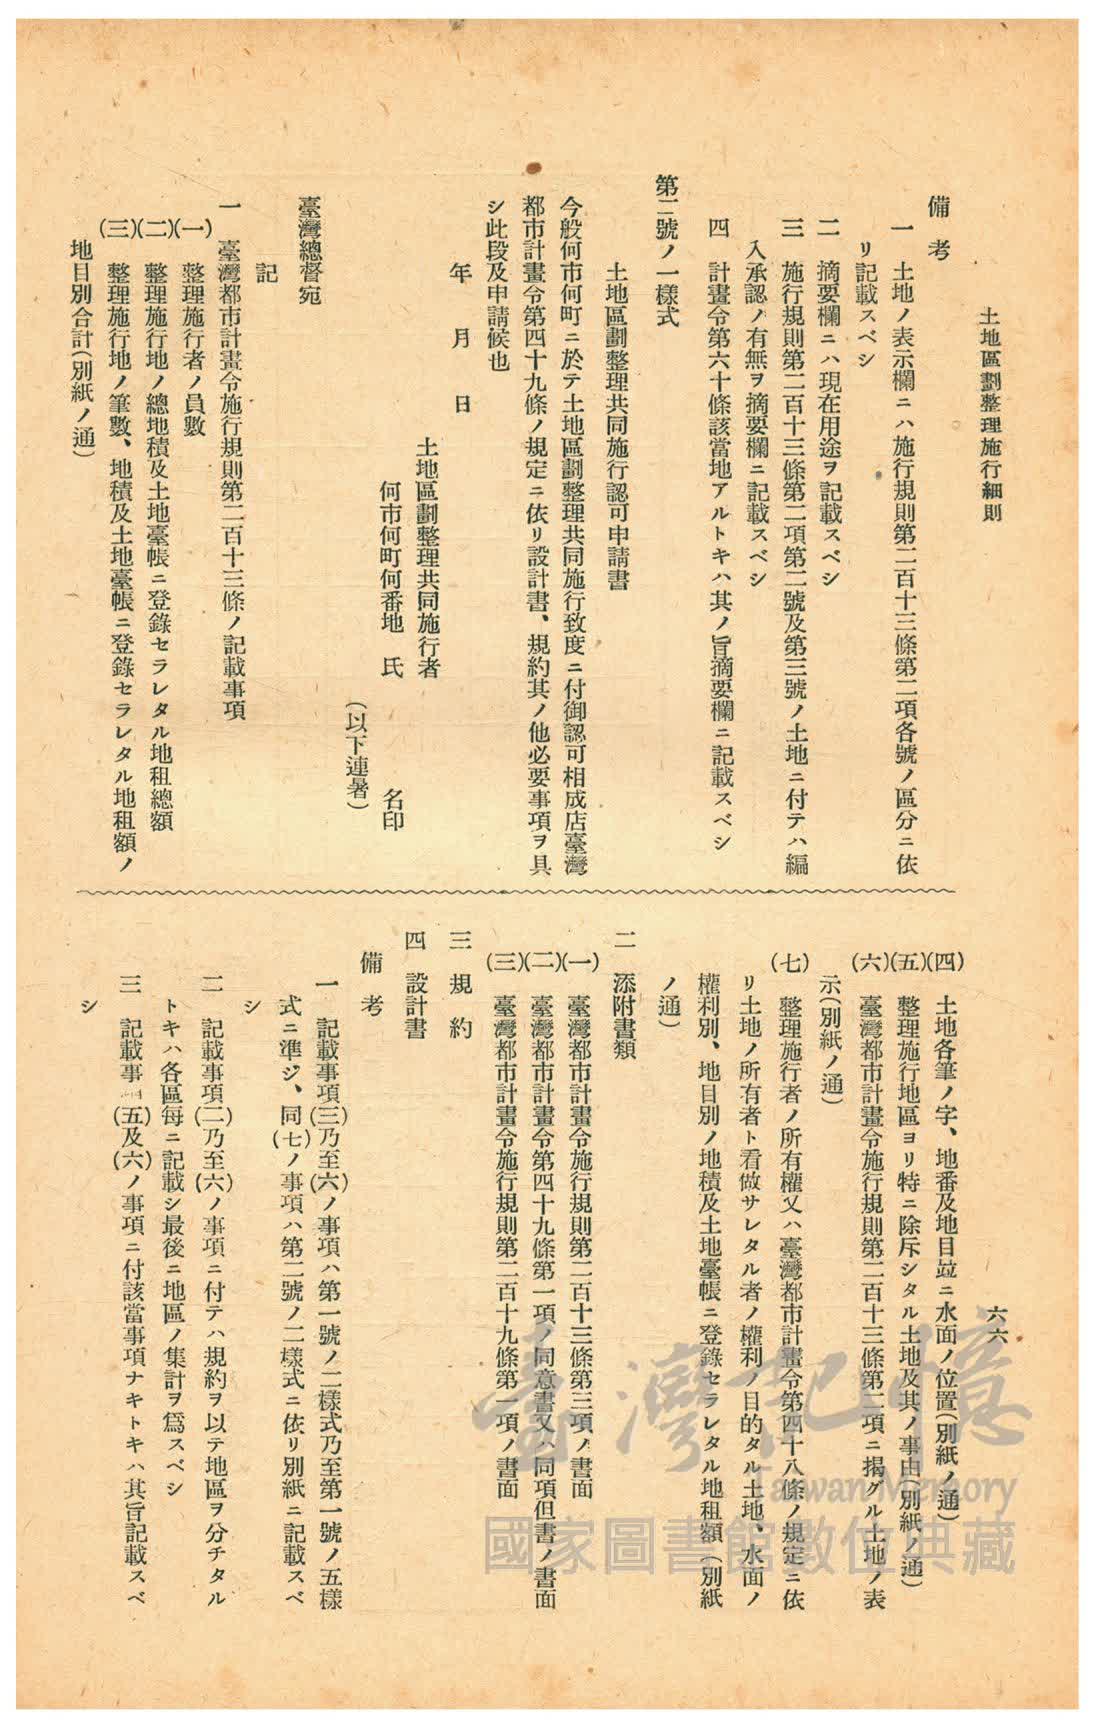 土地區劃整理施行細則
六六
備考
一　土地ノ表示欄ニハ施行規則第二百十三條第二項各號ノ區分ニ依
リ記載スベシ
二　摘要欄ニハ現在用途ヲ記載スベシ
三　施行規則第二百十三條第二項第二號及第三號ノ土地ニ付テハ編
入承認ノ有無ヲ摘要欄ニ記載スベシ
四　計畫令第六十條該當地アルトキハ其ノ旨摘要欄ニ記載スベシ
第二號ノ一樣式
土地區劃整理共同施行認可申請書
今般何市何町ニ於テ土地區劃整理共同施行致度ニ付御認可相成店臺灣
都市計畫令第四十九條ノ規定ニ依リ設計書、規約其ノ他必要事項ヲ具
シ此段及申請候也
年　月　日
土地區劃整理共同施行者
何市何町何番地　氏　名印
（以下連署）
臺灣總督宛
記
一　臺灣都市計畫令施行規則第二百十三條ノ記載事項
(一)　整理施行者ノ員數
(二)　整理施行地ノ總地積及土地臺帳ニ登錄セラレタル地租總額
(三)　整理施行地ノ筆數、地積及土地臺帳ニ登錄セラレタル地租額ノ
地目別合計(別紙ノ通)
(四)　土地各筆ノ字、地番及地目竝ニ水面ノ位置(別紙ノ通)
(五)　整理施行地區ヨリ特ニ除斥シタル土地及其ノ事由(別紙ノ通)
(六)　臺灣都市計畫令施行規則第二百十三條第二項ニ揭グル土地ノ表
示(別紙ノ通)
(七)　整理施行者ノ所有權又ハ臺灣都市計畫令第四十八條ノ規定ニ依
リ土地ノ所有者ト看做サレタル者ノ權利ノ目的タル土地、水面ノ
權利別、地目別ノ地積及土地臺帳ニ登錄セラレタル地租額(別紙
ノ通)
二　添附書類
(一)　臺灣都市計畫令施行規則第二百十三條第三項ノ書面
(二)　臺灣都市計畫令第四十九條第一項ノ同意書又ハ同項但書ノ書面
(三)　臺灣都市計畫令施行規則第二百十九條第一項ノ書面
三　規約
四　設計書
備考
一　記載事項(三)乃至(六)ノ事項ハ第一號ノ二樣式乃至第一號ノ五樣
式ニ準ジ、同(七)ノ事項ハ第二號ノ二樣式ニ依リ別紙ニ記載スベ
シ
二　記載事項(二)乃至(六)ノ事項ニ付テハ規約ヲ以テ地區ヲ分チタル
トキハ各區每ニ記載シ最後ニ地區ノ集計ヲ爲スベシ
三　記載事(五)及(六)ノ事項ニ付該當事項ナキトキハ其旨記載スベ
シ
臺灣記憶
Taiwan Memory
國家圖書館數位典藏